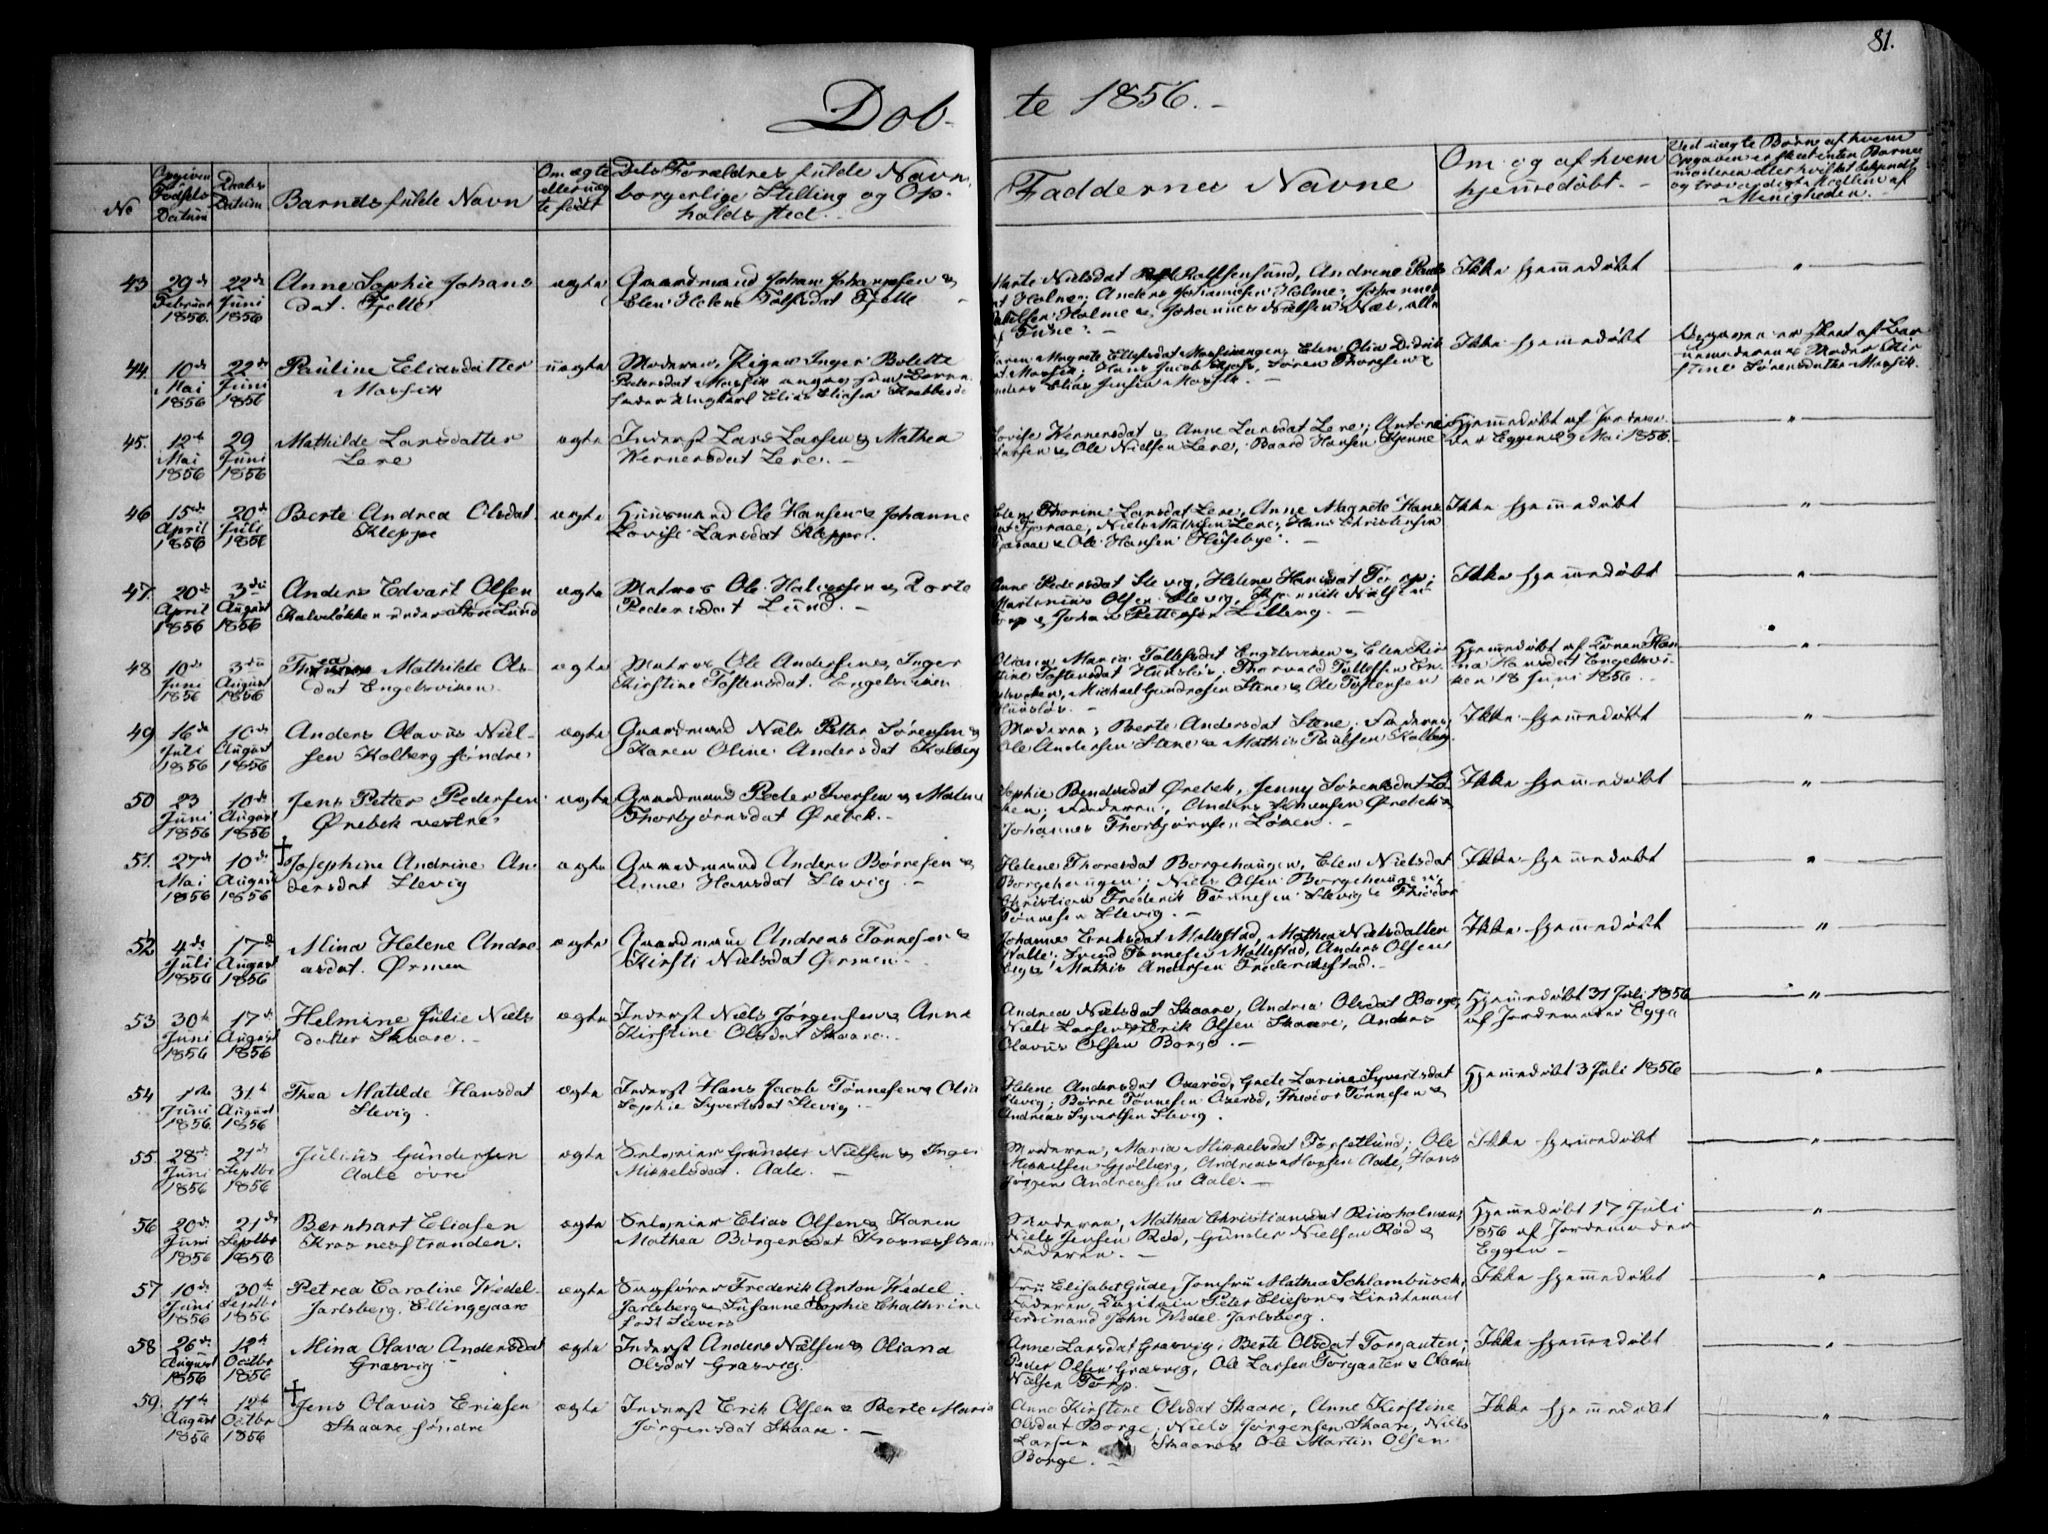 81.
Døb-te 1856.-
No
Opgiven Fødsels Datum
Daabs Datum
Barnets fulde Navn
Om ægte eller uægte født
Dets Forældres fulde Navn, borgerlige Stilling og Opholdssted.-
Faddernes Navne
Om og af hvem hjemmedøbt.-
Ved uægte Børn af hvem Opgaven er skeet enten Barnemoderen eller hvilket bekjendt og troværdigt Medlem af Menigheden.-
43 29de 22de Anne Sophie Johans ægte Gaardmand Johan Johannesen &
Februar Juni dat. Fjelle Elen Helene Tolfsdat Fjelle
1856. 1856
Andrene Pauls Ikke hjemmedøbt "
Holme; Anders Johannesen Holme; Johannes
Holme &, Johannes Nielsen Næs, alle
44. 10de 22de Pauline Eliasdatter uægte Moderen, Pigen Inger Bolette
Mai Juni Mossik Pedersdat Mossik angav som Barne
1856 1856 fader Ungkarl Elias Eliasen
Elen Olia Didrik Ikke hjemmedøbt Opgaven er skeet af Bar
Mossik; Hans Jacob Søren Thoresen & nemoderens Moder Kir
Elias Jensen Mossik.- stine Sørensdatter Mossik.
45. 12te 29 Mathilde Larsdatter ægte Inderst Lars Larsen & Mathea
Mai Juni Lere Wernersdat Lere.-
1856 1856
Lovise Wernersdat & Anne Larsdat Lere; Hjemmedøbt af Jordemo "
Larsen & Ole Nielsen Lere, Baard Hansen der Eggen 29 Mai 1856.
46 15de 20de Berte Andrea Olsdat. ægte Huusmand Ole Hansen & Johanne
April Juli Kleppe Lovise Larsdat Kleppe.
1856 1856
Thorine Larsdat Lere, Anne Magrete Hans Ikke hjemmedøbt "
Niels Mathisen Lere, Hans Christensen
& Ole Hansen Husebye.-
47. 20de 3die Anders Edvart Olsen ægte Matros Ole Halvorsen & Dorte
April August Kalveløkken under Store Lund Pedersdat Lund.-
1856 1856
Anne Pedersdat Slevig, Helene Hansdat Torp; Ikke hjemmedøbt "
Martinius Olsen Slevig, Nielsen
Torp & Johan Pettersen Lilleng.-
48 10de 3die Mathilde Ols ægte Matros Ole Andersen & Inger
Juni August dat Engelsviken. Kirstine Tostensdat. Engelsviken
1856 1856
Maria Tollefsdat Engelsviken & Elen Kir Hjemmedøbt af Konen Han "
stine Tostensdat Thorvald Tollefsen En na Hansdat Engelsvi
gelsviken, Michael Gundrosen Stene & Ole Tostensen ken 18 Juni 1856.-
49 16de 10de Anders Olavus Niel- ægte Gaardmand Niels Petter Sørensen &
Juli August sen Kolberg søndre Karen Oline Andersdat Kolberg
1856 1856
Moderen; Berte Andersdat Stene. Faderen, Ikke hjemmedøbt "
Ole Andersen Stene & Mathis Paulsen Kolberg.
50 23 10de Jens Petter Pedersen ægte Gaardmand Peder Iversen & Malene
Juni August Ørebek vestre Thorbjørnsdat Ørebek.-
1856 1856
Sophie Benduxdat Ørebek, Jenny Sørensdat Lø Ikke hjemmedøbt "
ken, Faderen, Anders Ørebek &
Johannes Thorbjørnsen Løken.-
51. 27de 10de † Josephine Andrine An ægte Gaardmand Anders Børresen &
Mai August dersdat Slevig Anne Hansdat Slevig.-
1856 1856
Helene Thoresdat Borgehaugen, Elen Nielsdat Ikke hjemmedøbt "
Borgehaugen; Niels Olsen Borgehaugen,
Christian Frederik Tønnesen Slevig & Theodor
Tønnesen Slevig.-
52 4de 17de Mina Helene Andre ægte Gaardmand Andreas Tønnesen &
Juli August asdat. Ørmen Kirsti Nielsdat Ørmen.-
1856 1856
Johanne Eriksdat Møllestad, Mathea Nielsdatter Ikke hjemmedøbt "
Walle; Svend Tønnesen Møllestad, Anders Olsen
& Mathis Andersen Frederikstad.-
53 30te 17de Helmine Julie Niels ægte Inderst Niels Jørgensen & Anne
Juni August datter Skaare.- Kirstine Olsdat Skaare.-
1856 1856
Andrea Nielsdat Skaare, Andrea Olsdat Borge, Hjemmedøbt 31 Juli 1856 "
Niels Larsen & Erik Olsen Skaare, Anders af Jordemoder Egga
Olavus Olsen Borge.-
54 1ste 31te Thea Matilde Hansdat ægte Inderst Hans Jacob Tønnesen & Olia
Juni August Slevig. Sophie Syvertsdat Slevig.-
1856 1856
Helene Andersdat Oxerød, Grete Larine Syvertsdat Hjemmedøbt 3 Juli 1856 "
Slevig; Børre Tønnesen Oxerød, Theodor Tønnesen &
Andreas Syvertsen Slevig.
55 28de 21de Julius Gundersen ægte Selveier Gunder Nielsen & Inger
Juni Septbr Aale øvre Mikkelsdat. Aale.-
1856 1856
Moderen, Maria Mikkelsdat Forsetlund; Ole Ikke hjemmedøbt "
Mikkelsen Gjølberg, Andreas Aale, Hans
Jørgen Andreasen Aale.-
56 20de 21de Bernhart Eliasen ægte Selveier Elias Olsen & Karen
Juni Septbr Krosnesstranden. Mathea Børgersdat Krosnesstran
1856 1856
Moderen, Mathea Christiansdat Riisholmen; Hjemmedøbt 17 Juli "
Niels Jensen Rød, Gunder Nielsen Rød & 1856 af Jordemoder
Faderen.- Eggen-
57 10de 30te Petrea Caroline Wedel ægte Sagfører Frederik Anton Wedel
Juni Septbr Jarlsberg. Ellinggaard Jarlsberg & Susanne Sophie Chathrine
1856 1856 født Sievers
Fru Elisabet Gude, Jomfru Mathea Schlambusch, Ikke hjemmedøbt "
Faderen, Capitain Peter Elieson & Lieutenant
Ferdinand John Wedel Jarlsberg.
58 26de 12te Mina Olava Andersdat ægte Inderst Anders Nielsen & Oliana
August Octbr Græsvig Olsdat Græsvig.
1856 1856
Anne Larsdat Græsvig, Berte Olsdat Torgauten; Ikke hjemmedøbt "
Peder Olsen Græsvig, Ole Larsen Torgauten &
Nielsen Torp.-
59. 11te 12te † Jens Olavus Eriksen ægte Inderst Erik Olsen & Berte Maria
August Octbr Skaare søndre Jørgensdat Skaare.-
1856 1856
Anne Kirstine Olsdat Skaare, Anne Kirstine Ikke hjemmedøbt "
Olsdat Borge; Niels Jørgensen Skaare, Niels
Larsen Skaare & Ole Martin Olsen
Borge.-